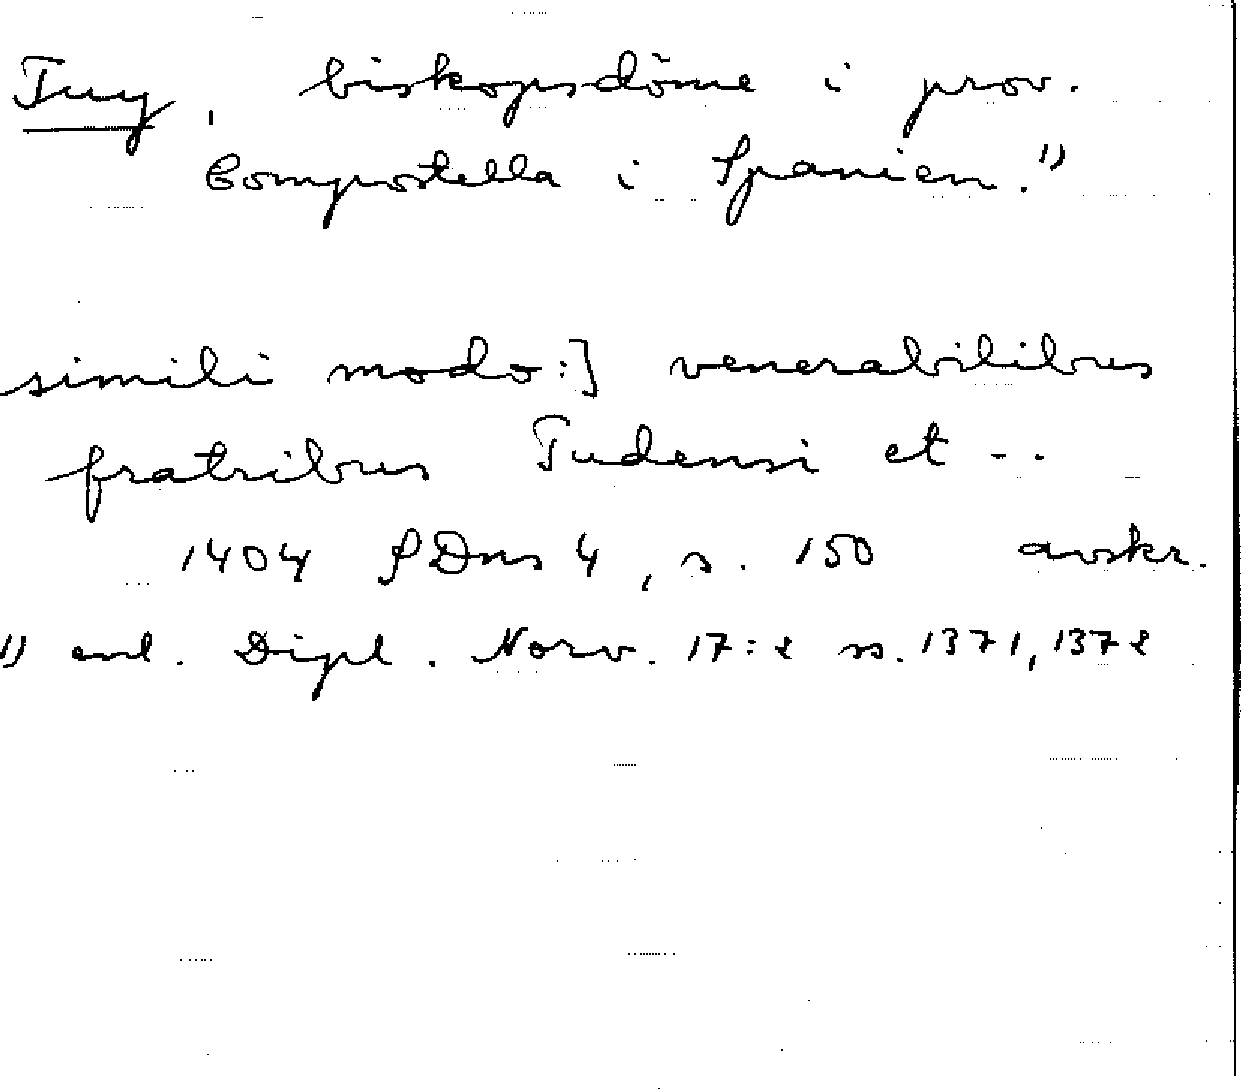 Tuy, biskopsdöme i prov.
Compostella i Spanien.1)
simili modo:] venerabilibus
fratribus Tudensi et --
1404 SDns 4, s. 150 avskr.
1) enl. Dipl. Norv. 17:2 ss. 1371, 1372